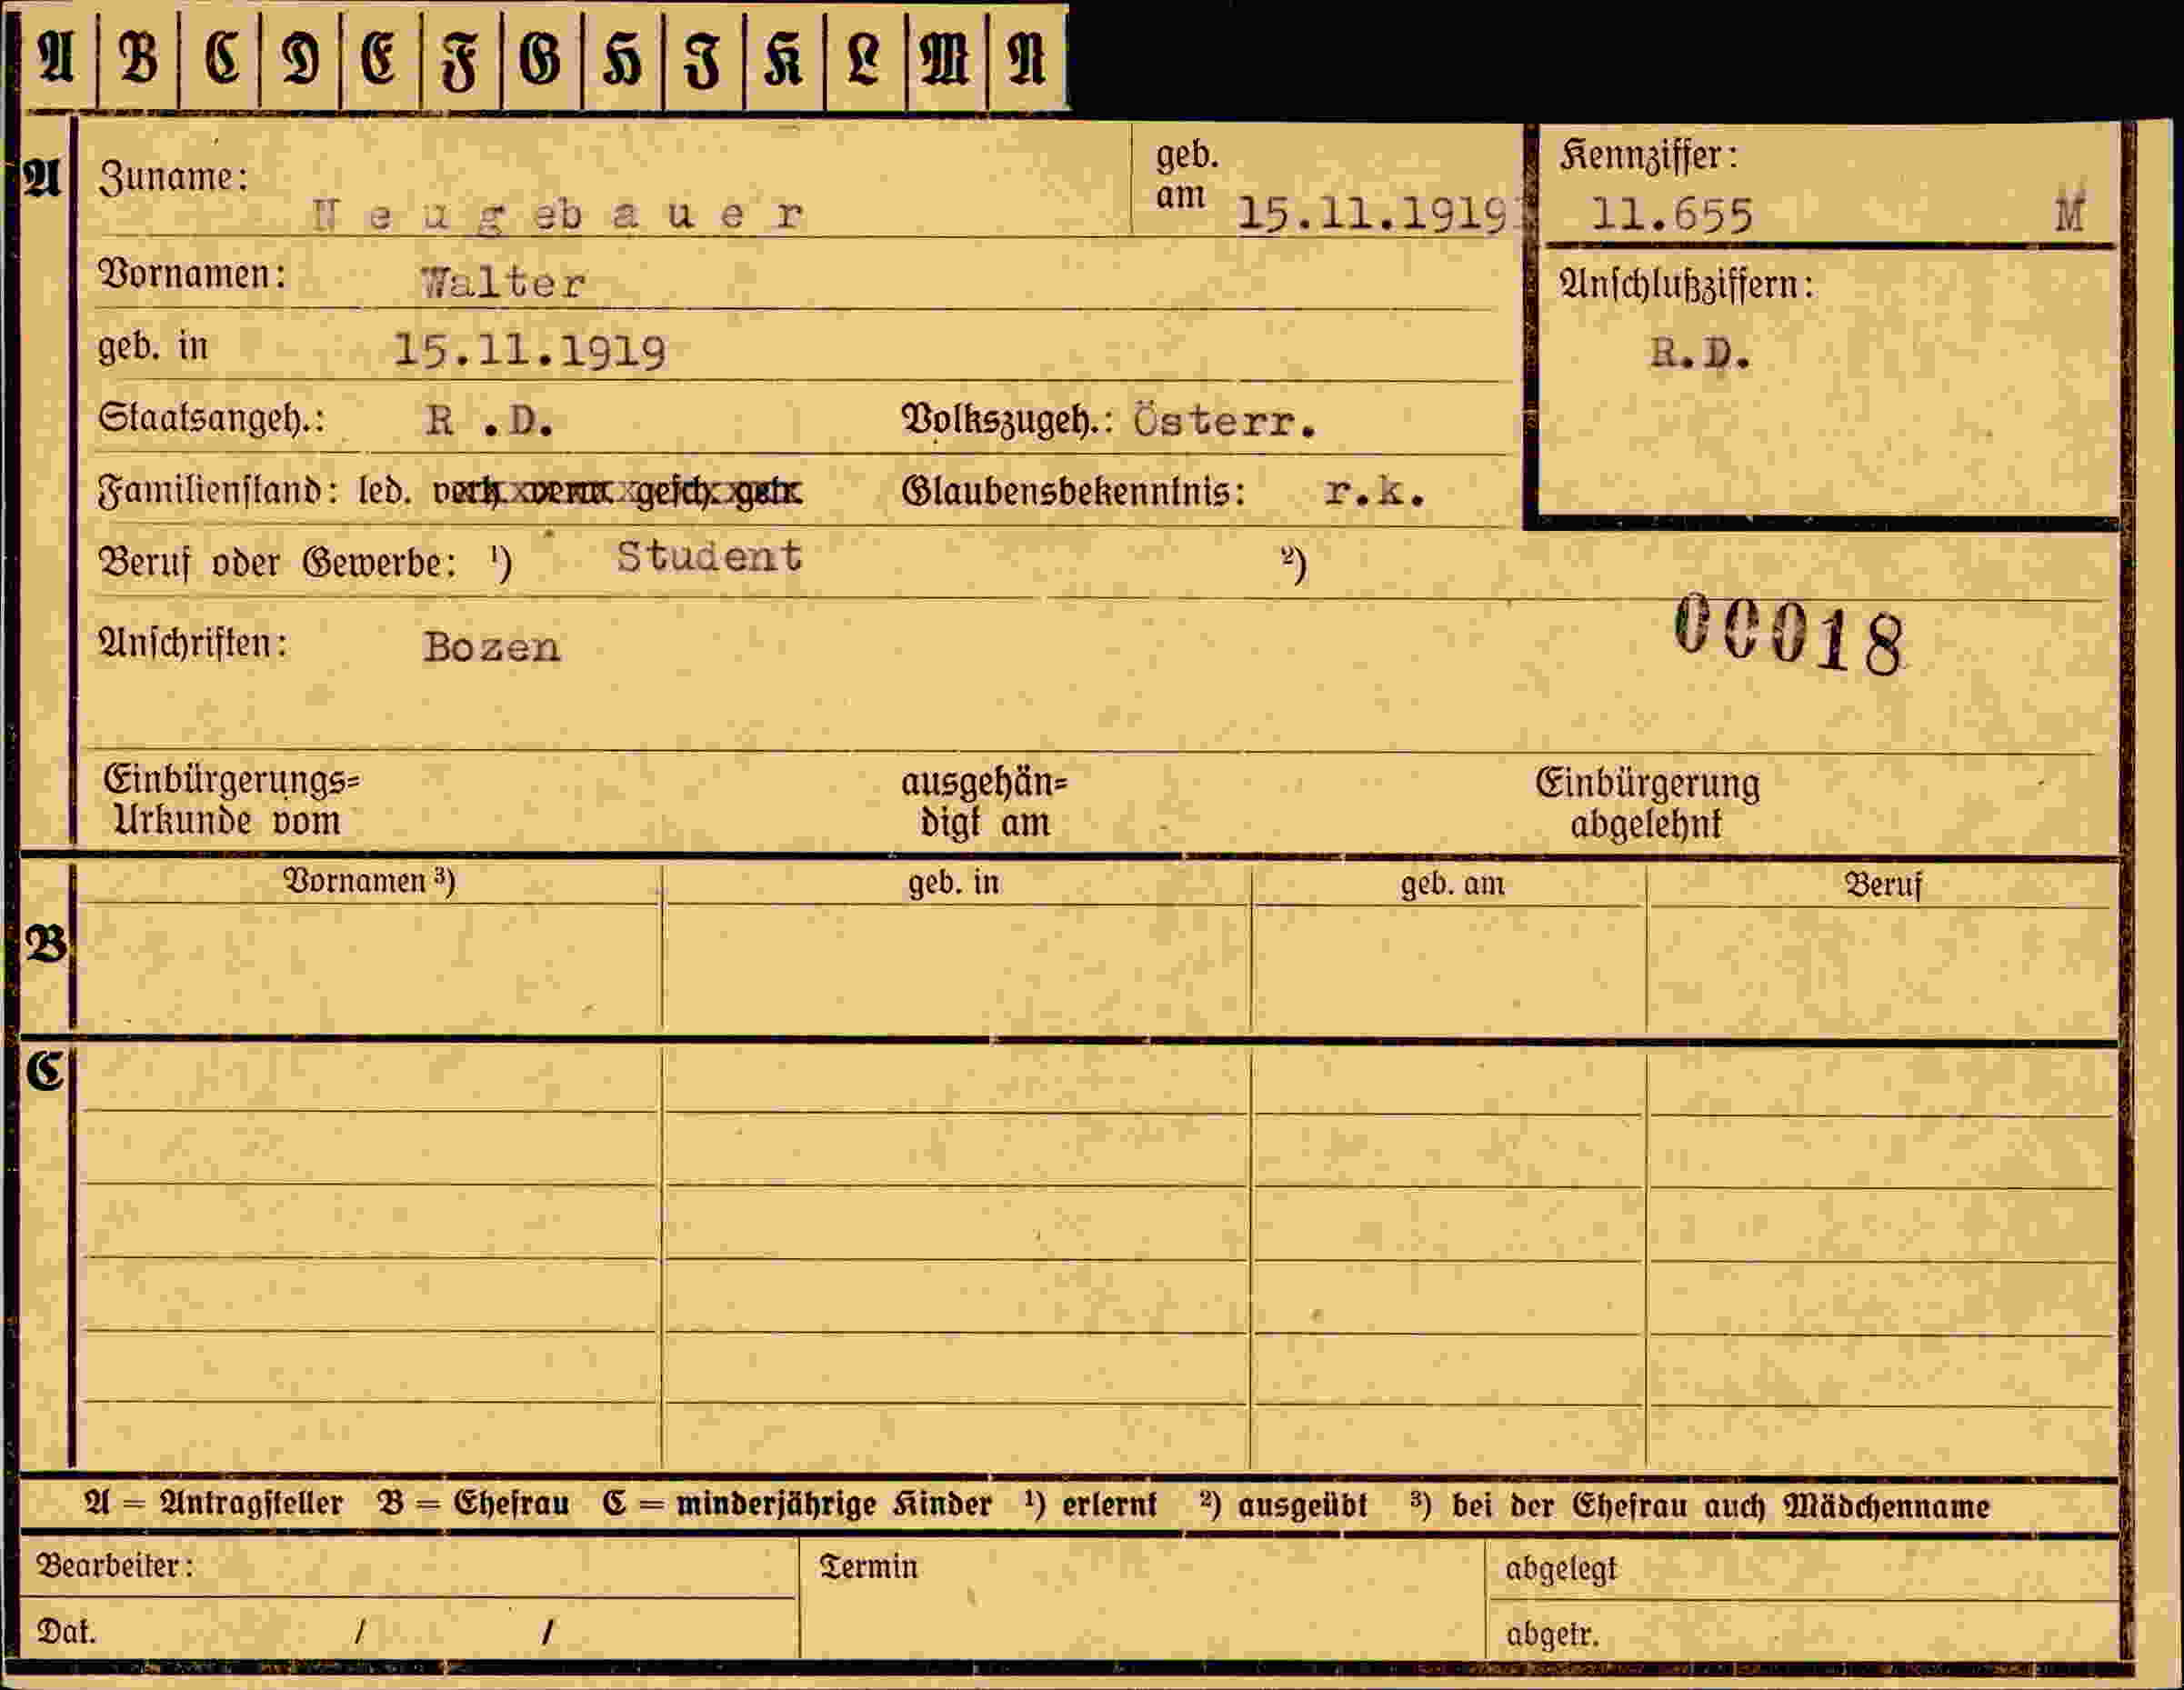 A B C D E F G H I K L M N
A Zuname: Neugebauer geb. am 15.11.1919 Kennziffer: 11.655 M
Vornamen: Walter Anschlußziffern:
geb. in 15.11.1919 R.D.
Staatsangeh.: R .D. Volkszugeh.: Österr.
Familienstand: led. verh. verw. gesch. getr. Glaubensbekenntnis: r.k.
Beruf oder Gewerbe: ¹) Student ²)
Anschriften: Bozen 00018
Einbürgerungs= ausgehän= Einbürgerung
Urkunde vom digt am abgelehnt
Vornamen ³) geb. in geb. am Beruf
B
C
A = Antragsteller B = Ehefrau C = minderjährige Kinder ¹) erlernt ²) ausgeübt ³) bei der Ehefrau auch Mädchenname
Bearbeiter: Termin abgelegt
Dat. / / abgetr.